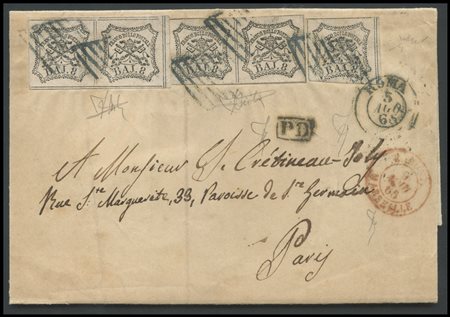 BAJ. 8 BAJ. 8 BAJ. 8 BAJ. 8 BAJ. 8
ROMA
5
AGO
65
PD
A Monsieur J. Crétineau-Joly
Rue Ste Marguerite, 33, Paroisse de St Germain
Paris